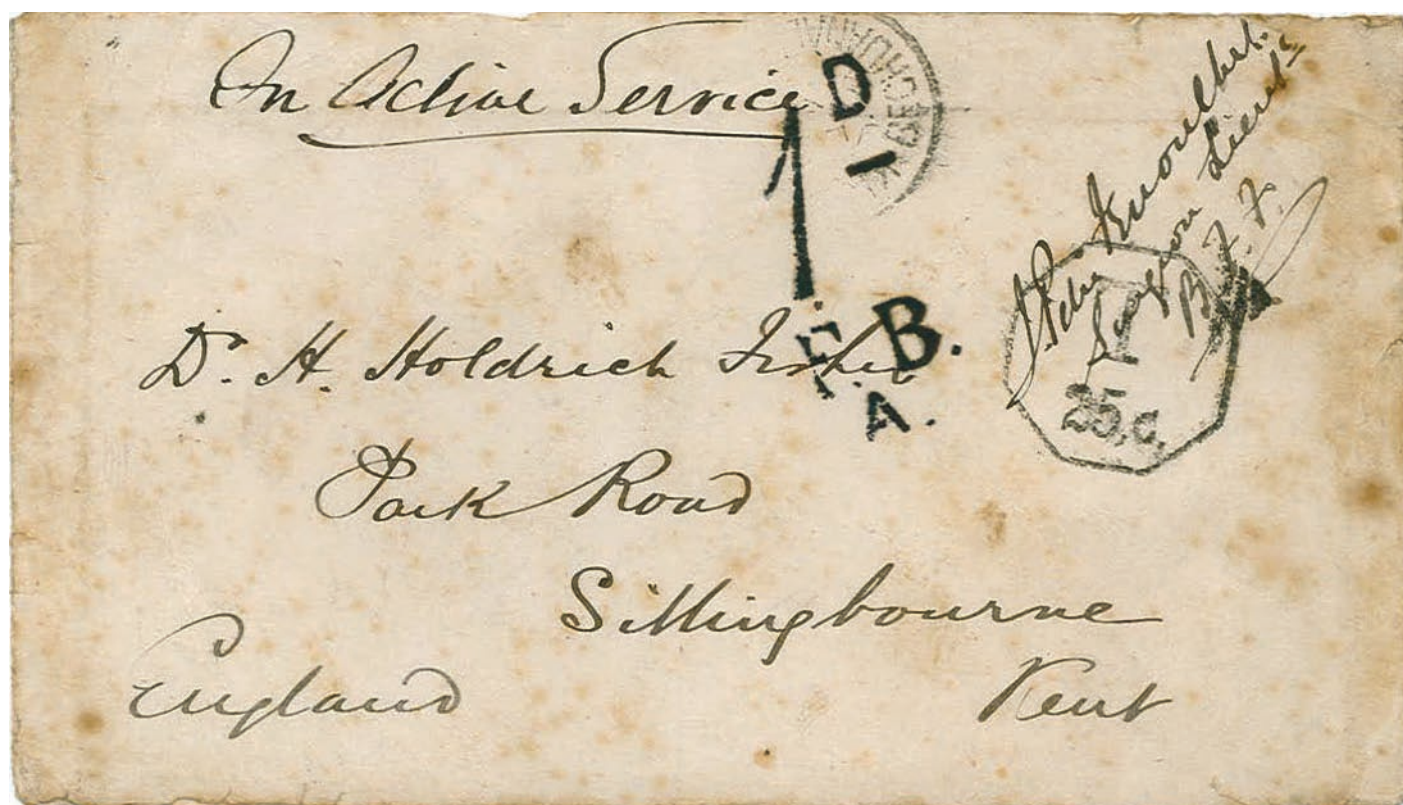 On Active Service
1 D
F.B.
A.
T
25.c.
Surgeon Lieut
B.F.F.
Dr. H. Holdrich Fisher
Park Road
Sittingbourne
Kent
England